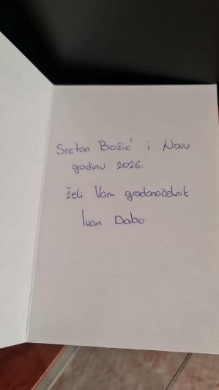 Sretan Božić i Novu
godinu 2026.
želi Vam gradonačelnik
Ivan Dabo